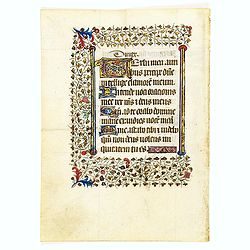 Verba mea au
ribus percipe dñe
intellige clamorem meum
Intende voci orationis
mee rex meus et deus meus
Qm ad te orabo domine
mane exaudies vocem meã
Mane astabo tibi et videbo
qm non deus volens in
iquitatem tu es